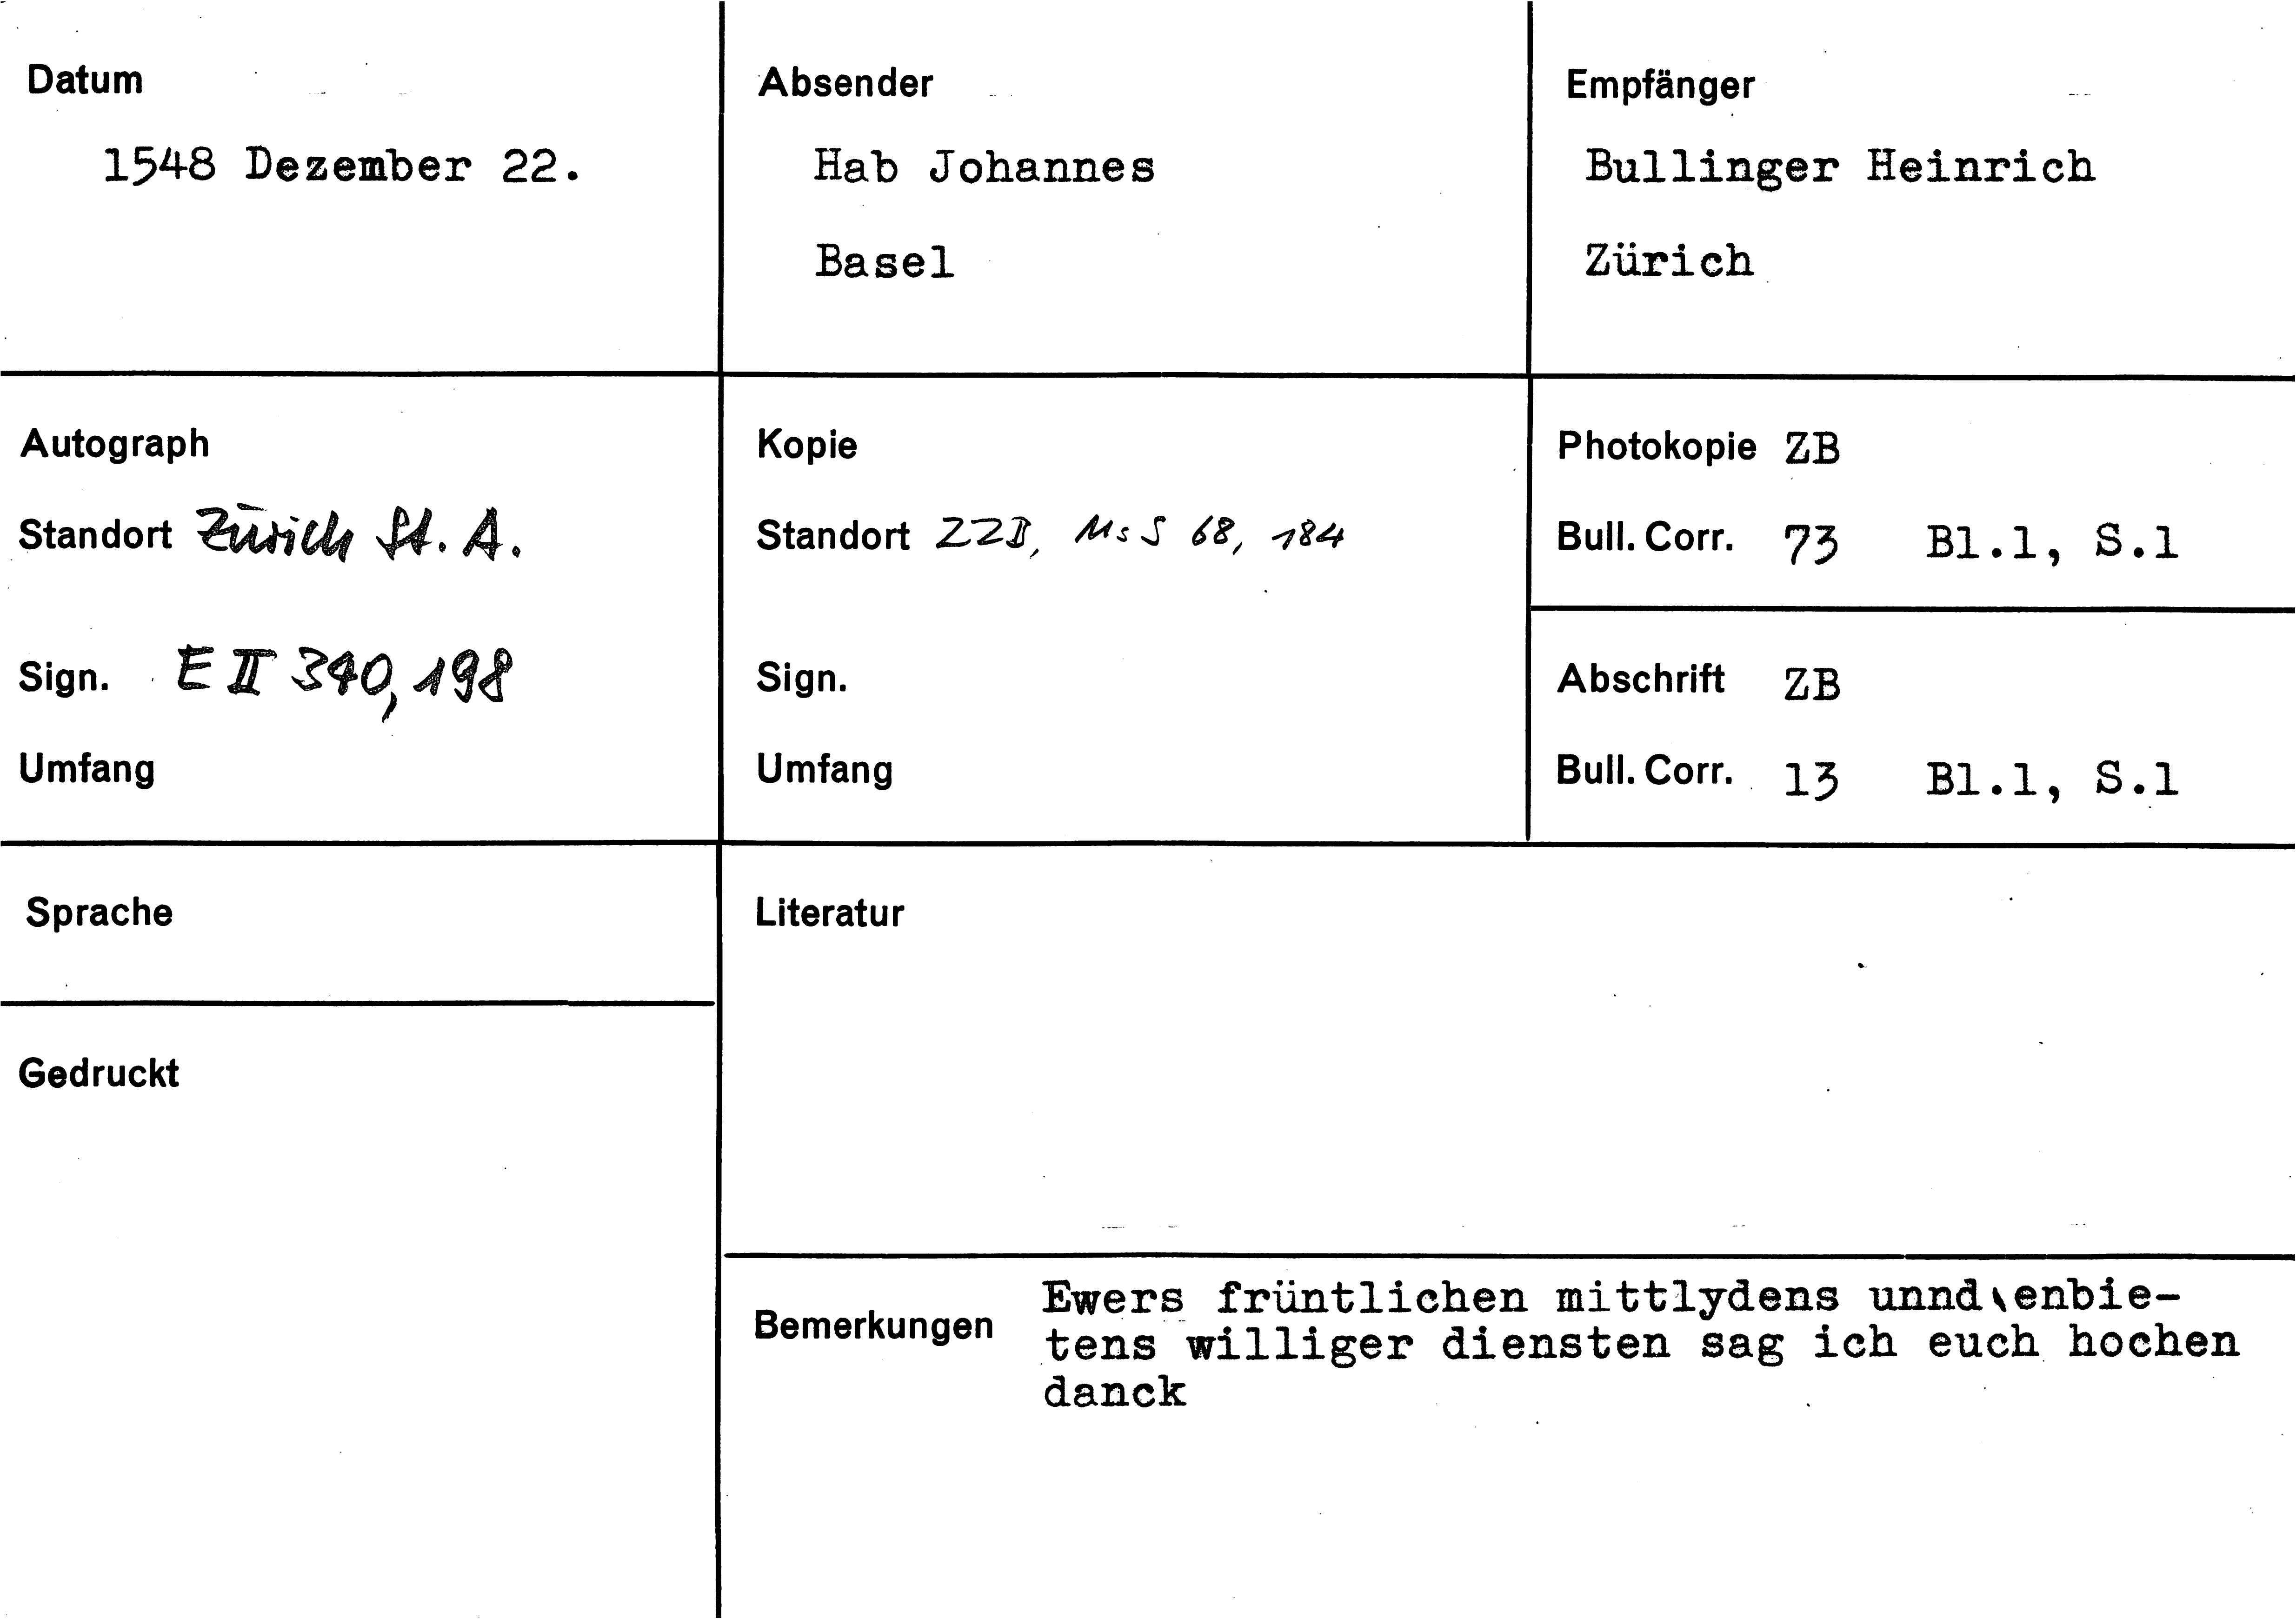 Datum
1548 Dezember 22.
Absender
Hab Johannes
Basel
Empfänger
Bullinger Heinrich
Zürich
Autograph
Standort Zürich St. A.
Sign. E II 340, 198
Umfang
Kopie
Standort ZZB, Ms S 68, 184
Sign.
Umfang
Photokopie ZB
Bull. Corr. 73 Bl.1, S.1
Abschrift ZB
Bull. Corr. 13 Bl.1, S.1
Sprache
Gedruckt
Literatur
Bemerkungen
Ewers früntlichen mittlydens unnd\enbie-
tens williger diensten sag ich euch hochen
danck